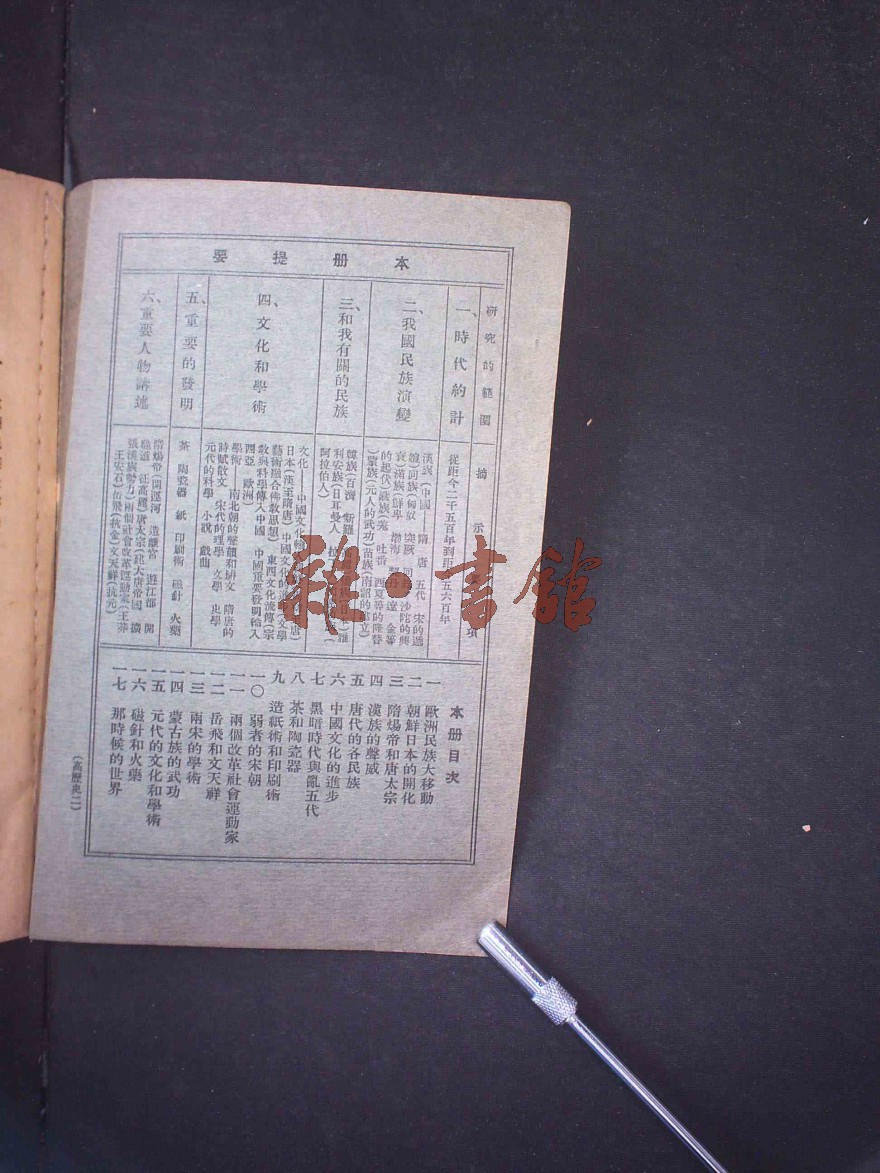 本册提要
研究的範圍
一、時代約計
二、我國民族演變
三、和我有關的民族
四、文化和學術
五、重要的發明
六、重要人物講述
摘示
項
從距今二千五百年到距
五六百年
漢族(中國——隋 唐 五代 宋的遞
文化——中國文化
日本(漢至隋唐)中國文化的
文學
藝術融合佛教思想) 東西文化流傳(宗
教與科學傳入中國 中國重要發明輸入
西亞 歐洲)
學術——南北朝的聲韻和駢文 隋唐的
時賦散文 宋代的理學 文學 史學
元代的科學 小說 戲曲
茶 陶瓷器 紙 印刷術 磁針 火藥
隋煬帝(開運河 造離宮 遊江都 開
張漢族勢力)兩個社會改革運動家(王莽
王安石)岳飛(抗金)文天祥(抗元)
利安族(日耳曼人
阿拉伯人)
本册目次
一 歐洲民族大移動
二 朝鮮日本的開化
三 隋煬帝和唐太宗
四 漢族的聲威
五 唐代的各民族
六 中國文化的進步
七 黑暗時代與亂五代
八 茶和陶瓷器
九 造紙術和印刷術
一〇 弱者的宋朝
一一 兩個改革社會運動家
一二 岳飛和文天祥
一三 兩宋的學術
一四 蒙古族的武功
一五 元代的文化和學術
一六 磁針和火藥
一七 那時候的世界
(高歷史二)
雜·書館